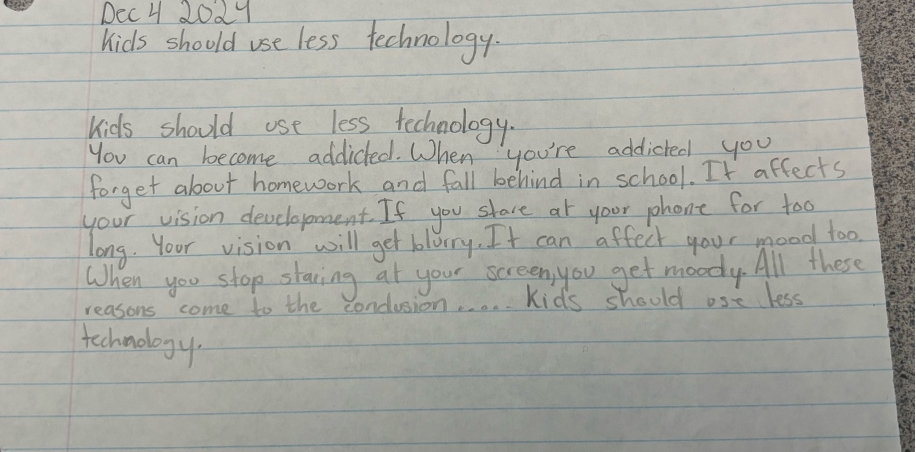 Dec 4 2024
Kids should use less technology.
Kids should use less technology.
You can become addicted. When you're addicted you
forget about homework and fall behind in school. It affects
your vision development. If you stare at your phone for too
long. Your vision will get blurry. It can affect your mood too.
When you stop staring at your screen, you get moody. All these
reasons come to the conclusion..... Kids should use less
technology.